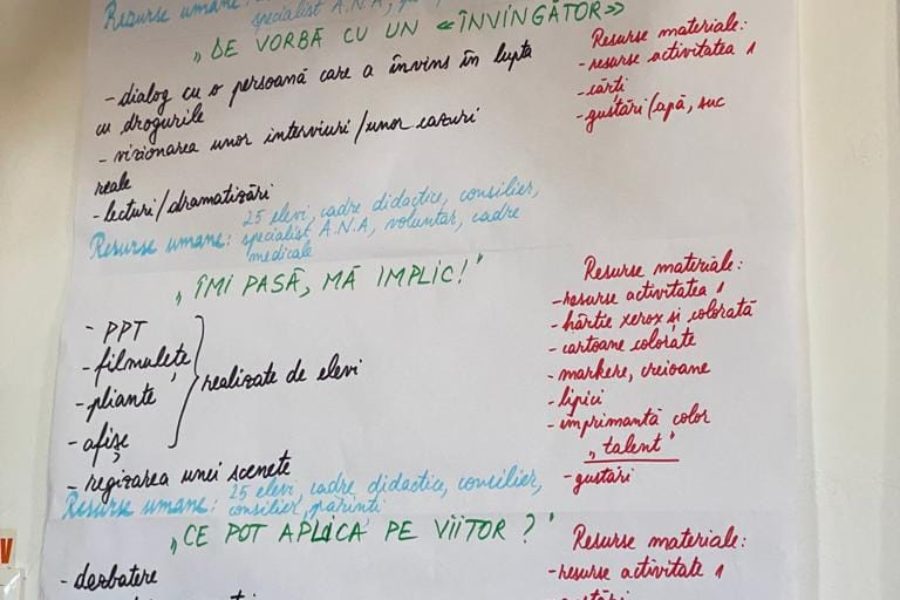 Resurse umane:
specialist A.N.A,
„DE VORBĂ CU UN «ÎNVINGĂTOR»
- dialog cu o persoană care a învins în lupta
cu drogurile
- vizionarea unor interviuri/unor cazuri
reale
- lecturi/dramatizări
Resurse umane: 25 elevi, cadre didactice, consilier,
specialist A.N.A, voluntar, cadre
medicale
Resurse materiale:
- resurse activitatea 1
- cărți
- gustări/apă, suc
„ÎMI PASĂ, MĂ IMPLIC!"
- PPT
- filmulețe
- pliante
- afișe
realizate de elevi
- regizarea unei scenete
Resurse umane: 25 elevi, cadre didactice, consilier,
consilier, părinti
Resurse materiale:
- resurse activitatea 1
- hârtie xerox și colorată
- cartoane colorate
- markere, creioane
- lipici
- imprimantă color
„talent"
- gustări
„CE POT APLICA PE VIITOR ?"
- dezbatere
Resurse materiale:
- resurse activitate 1
V